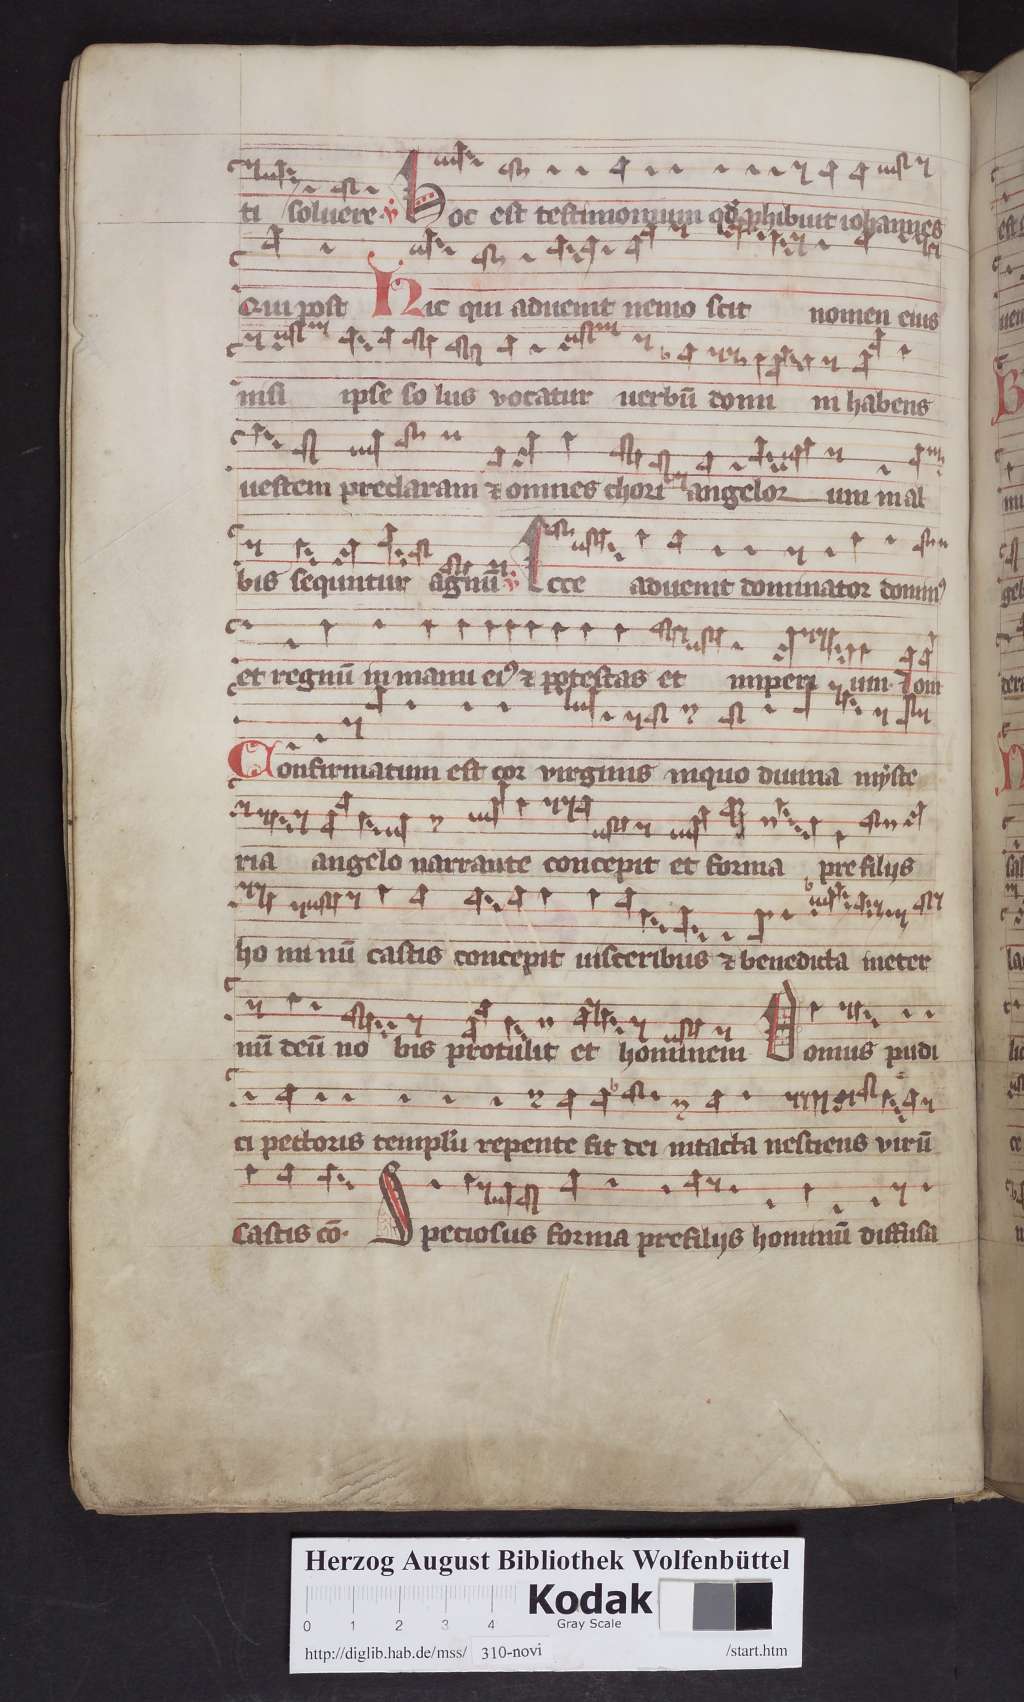 ti soluere v̄ Hoc est testimonium qd̄ phibuit iohannes
Qui post Hic qui aduenit nemo scit nomen eius
nisi ipse so lus vocatur uerbū domi ni habens
uestem preclaram & omnes chori angelor um in al
bis sequntur agnū v̄ Ecce aduenit dominator domin⁹
et regnū in manu ei⁹ & potestas et imperi um. Dom
Confirmatum est cor virginis inquo diuina myste
ria angelo narrante concepit et forma pre filijs
ho mi nū castis concepit uisceribus & benedicta ineter
nū deū no bis protulit et hominem Domus pudi
ci pectoris templū repente fit dei intacta nesciens virū
Castis cō. Speciosus forma prefilijs hominū diffusa
Herzog August Bibliothek Wolfenbüttel
Kodak
Gray Scale
0 1 2 3 4
http://diglib.hab.de/mss/ 310-novi /start.htm